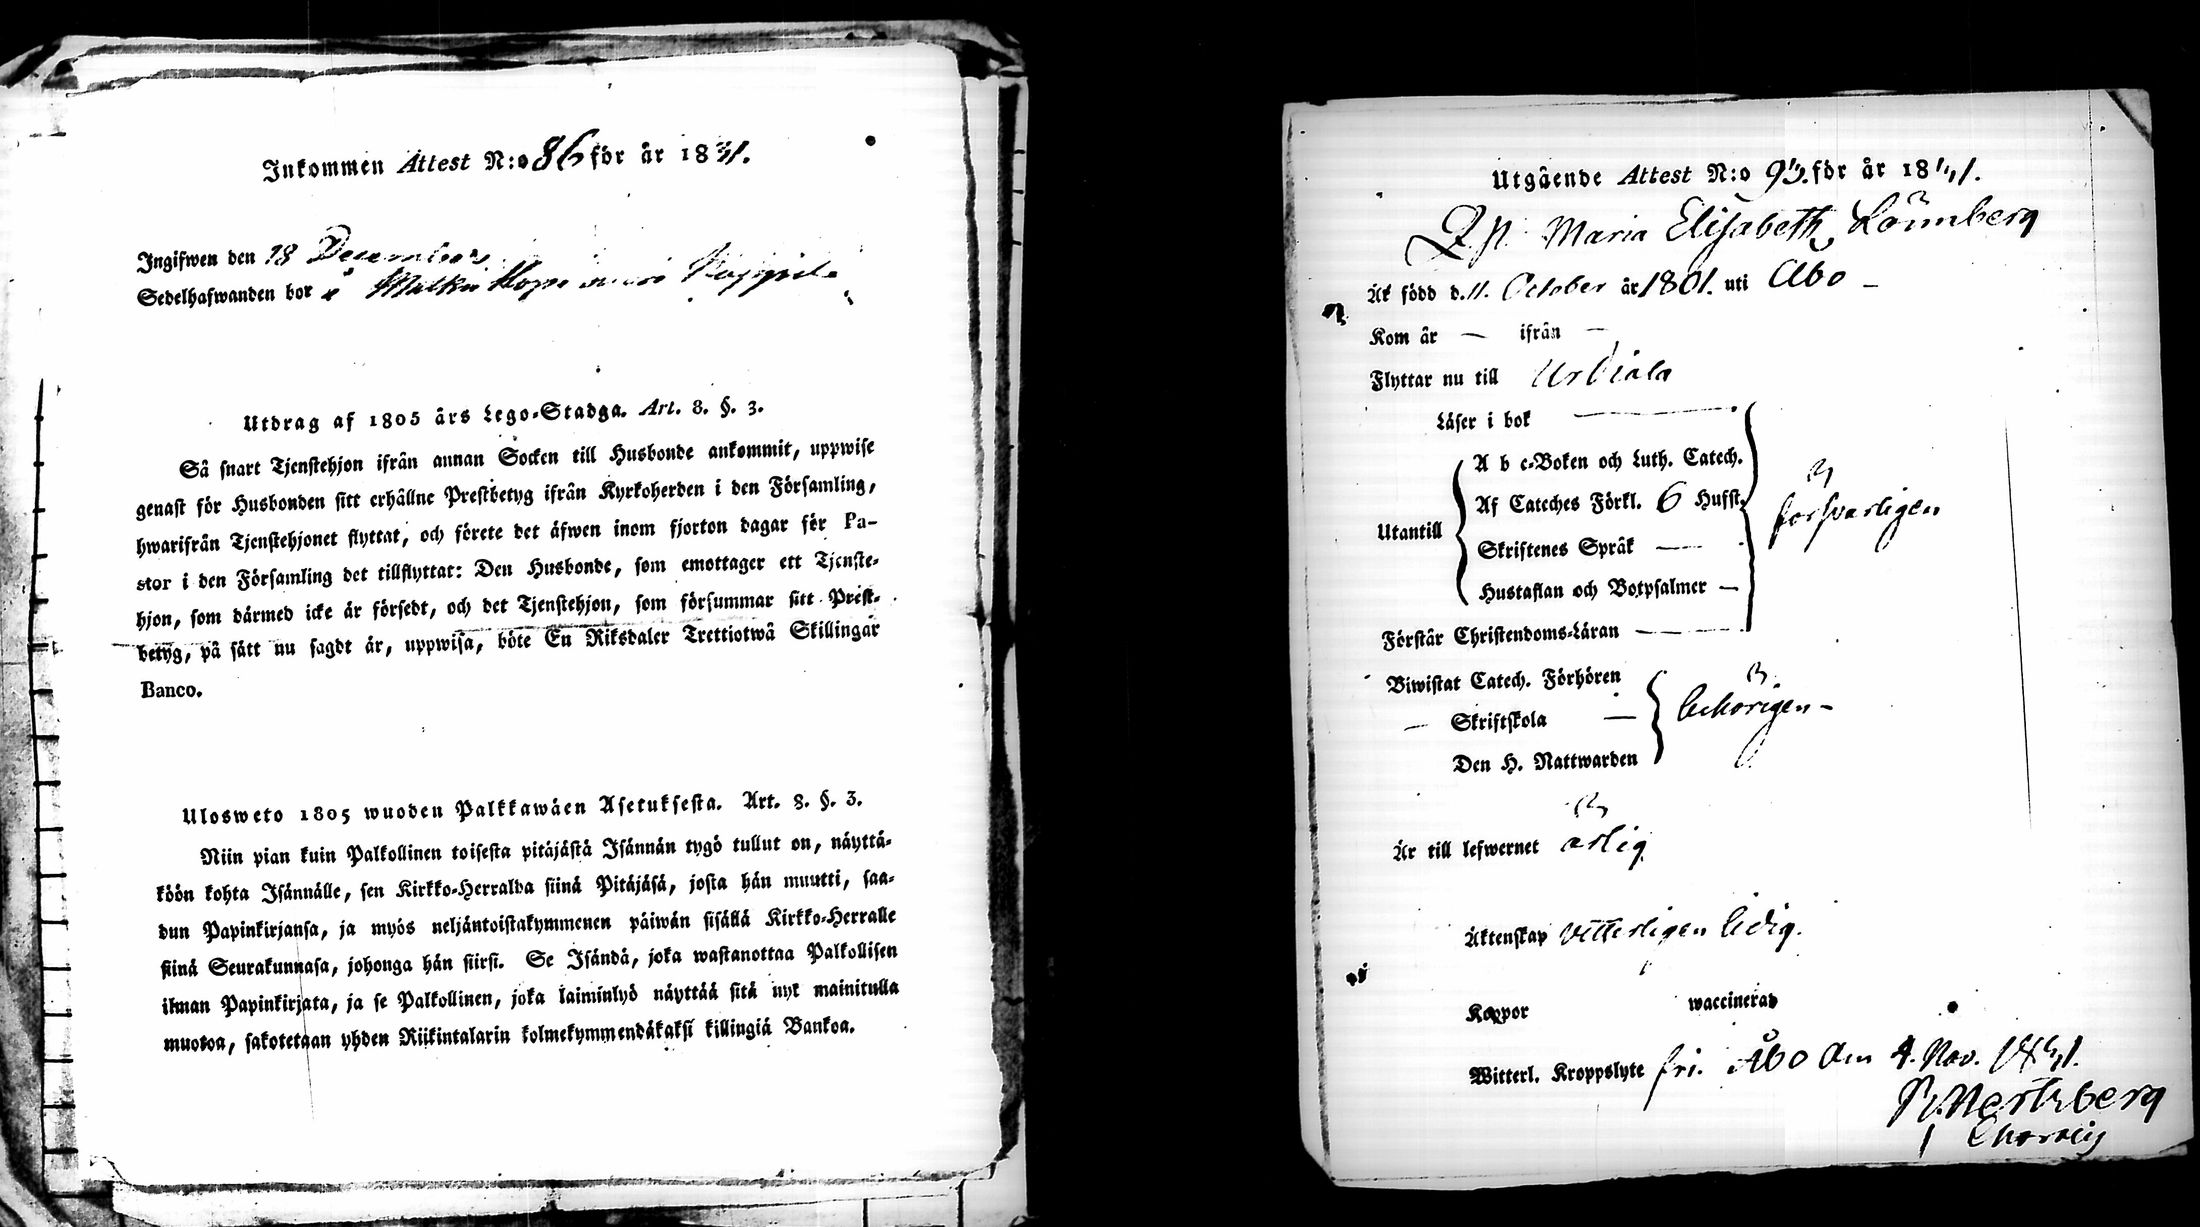 Inkommen Attest N:o 86 för år 1841.
Ingifwen den 18 December
Sedelhafwanden bor i
Utdrag af 1805 års Lego-Stadga. Art. 8. §. 3.
Så snart Tjenstehjon ifrån annan Socken till Husbonde ankommit, uppwise
genast för Husbonden sitt erhållne Prestbetyg ifrån Kyrkoherden i den Församling,
hwarifrån Tjenstehjonet flyttat, och förete det äfwen inom fjorton dagar för Pa-
stor i den Församling det tillflyttat: Den Husbonde, som emottager ett Tjenste-
hjon, som därmed icke är försedt, och det Tjenstehjon, som försummar sitt Prest-
betyg, på sätt nu sagdt är, uppwisa, böte En Riksdaler Trettiotwå Skillingar
Banco.
Ulosweto 1805 wuoden Palkkawäen Asetuksesta. Art. 8. §. 3.
Niin pian kuin Palkollinen toisesta pitäjästä Isännän tygö tullut on, näyttä-
köön kohta Isännälle, sen Kirkko-Herralda siinä Pitäjäsä, josta hän muutti, saa-
dun Papinkirjansa, ja myös neljäntoistakymmenen päiwän sisällä Kirkko-Herralle
siinä Seurakunnasa, johonga hän siirsi. Se Isändä, joka wastanottaa Palkollisen
ilman Papinkirjata, ja se Palkollinen, joka laiminlyö näyttää sitä nyt mainitulla
muotoa, sakotetaan yhden Riikintalarin kolmekymmendäkaksi killingiä Bankoa.
Utgående Attest N:o 93. för år 1841.
Maria Elisabeth Lönnberg
Är född d. 11. October år 1801. uti Åbo –
Kom år — ifrån —
Flyttar nu till Urdiala
Läser i bok —
A b c-Boken och Luth. Catech.
Af Cateches Förkl. 6 Hufst.
Utantill
försvarligen
Skriftenes Språk —
Hustaflan och Botpsalmer —
Förstår Christendoms-Läran —
Biwistat Catech. Förhören
— Skriftskola — behörigen –
Den H. Nattwarden
Är till lefwernet ärlig
Äktenskap vitterligen ledig.
Koppor waccinerad
Witterl. Kroppslyte fri. Åbo den 4. Nov. 1841.